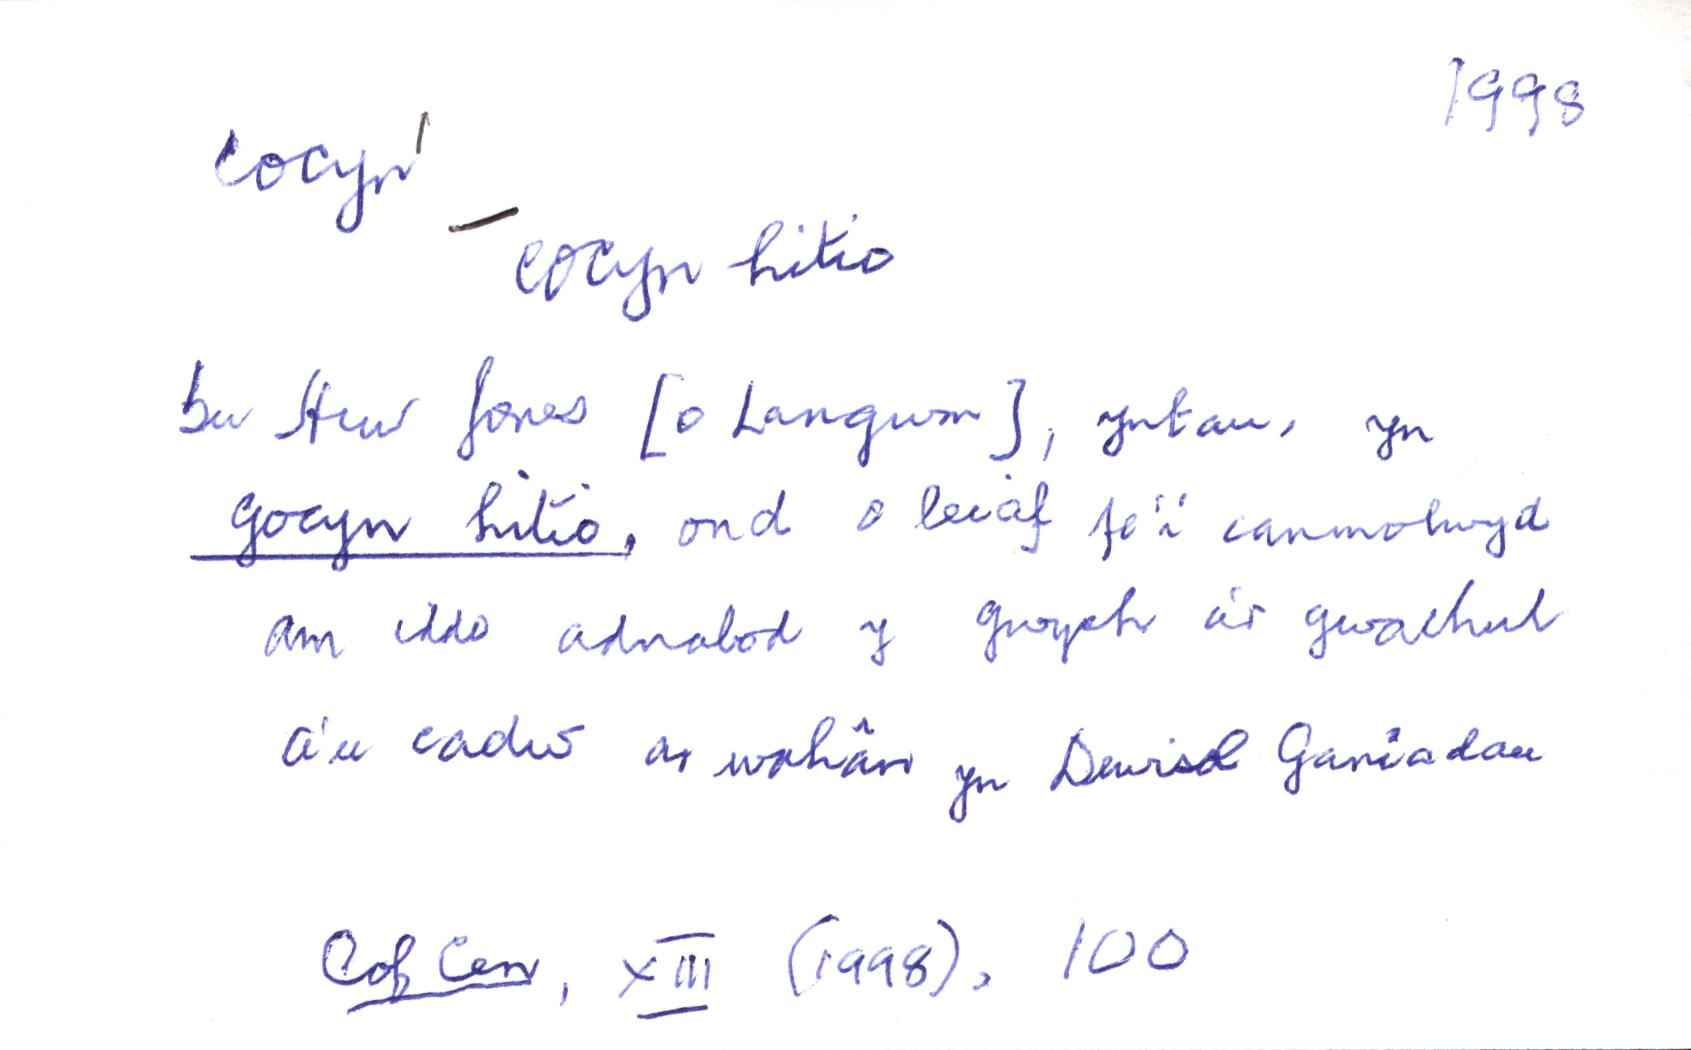 1998
cocyn¹
– cocyn hitio
bu Huw Jones [o Langwm], yntau, yn
gocyn hitio, ond o leiaf fe'i canmolwyd
am iddo adnabod y gwych a'r gwachul
a'u cadw ar wahân yn Dewisol Ganiadau
Cof Cen, XIII (1998), 100